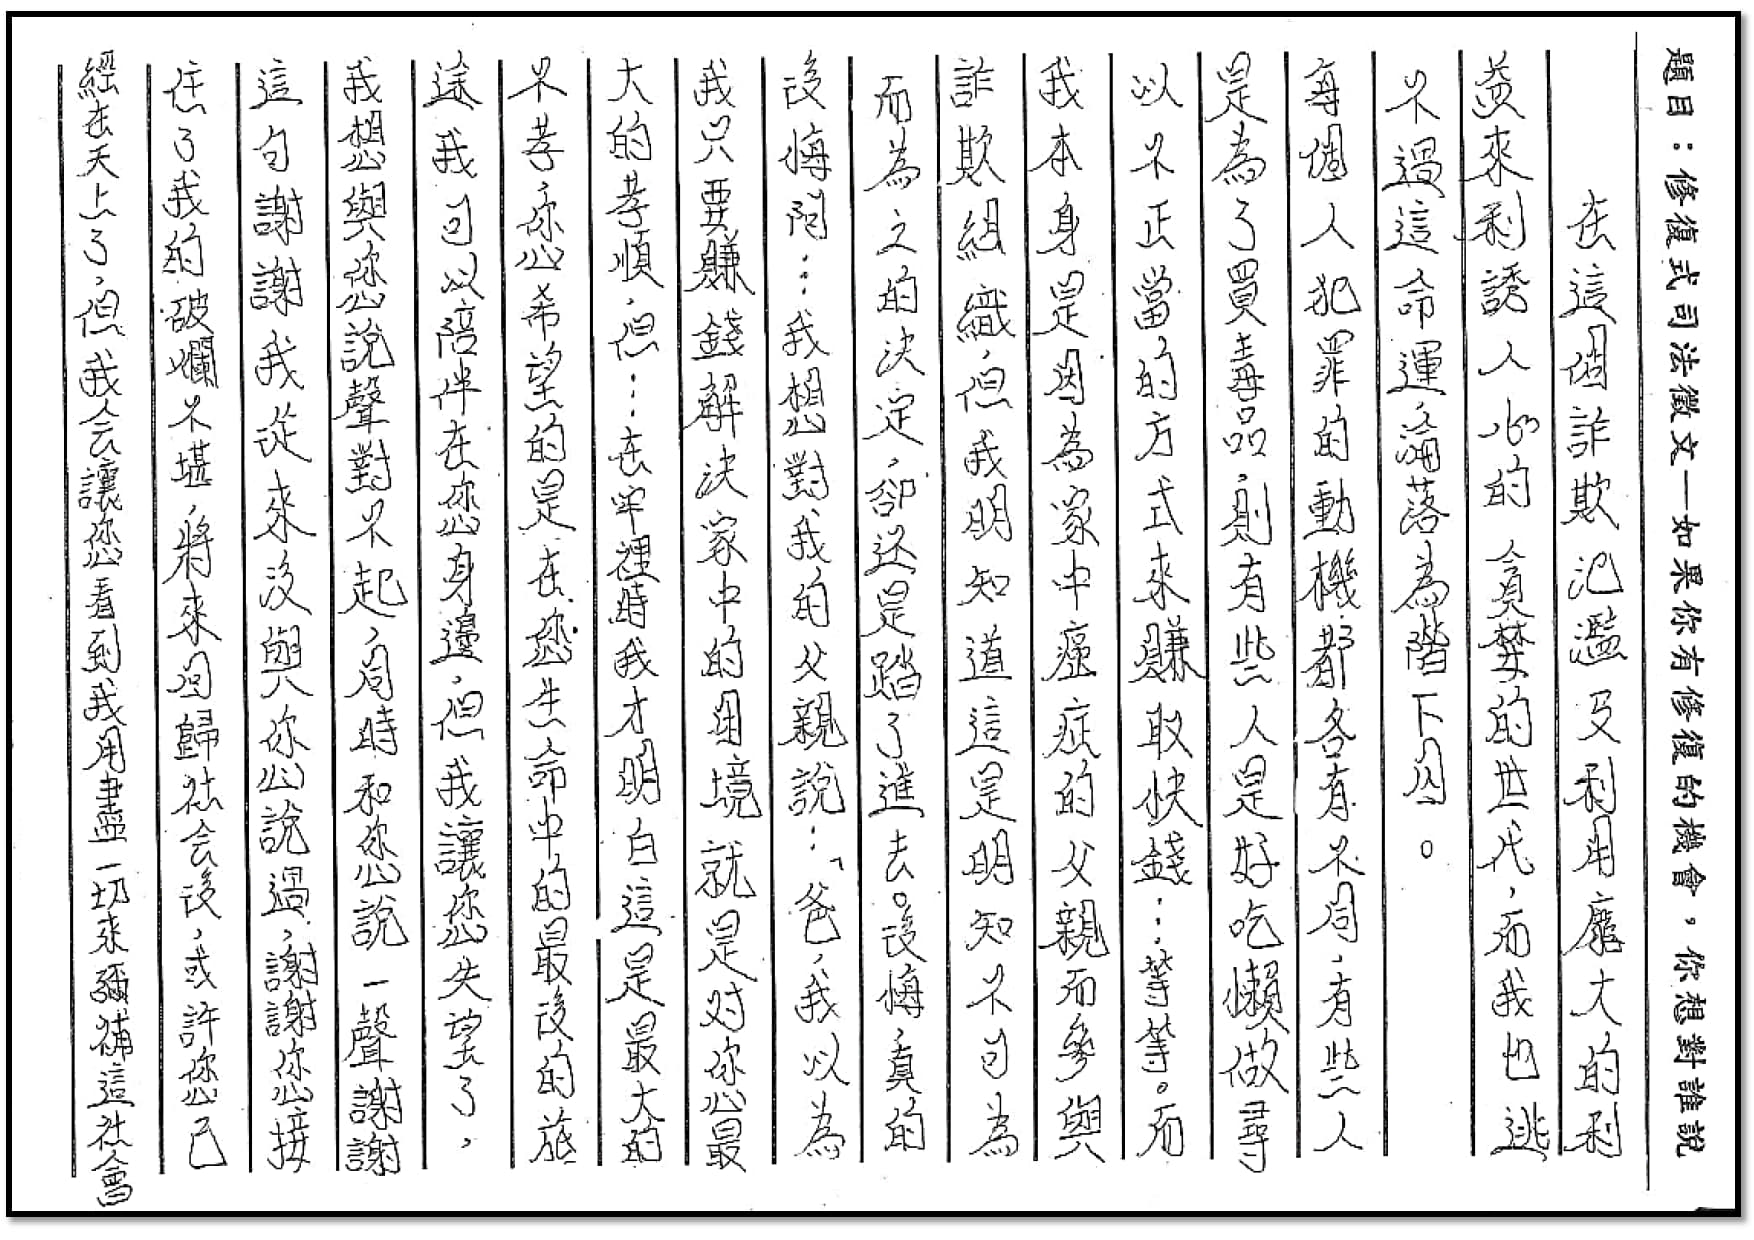 題目：修復式司法徵文—如果你有修復的機會，你想對誰說
在這個詐欺氾濫及利用龐大的利
益來利誘人心的貪婪的世代，而我也逃
不過這命運，淪落為階下囚。
每個人犯罪的動機都各有不同，有些人
是為了買毒品，則有些人是好吃懶做尋
以不正當的方式來賺取快錢…等等。而
我本身是因為家中癌症的父親而參與
詐欺組織，但我明知道這是明知不可為
而為之的決定，卻还是踏了進去。後悔，真的
後悔阿…我想對我的父親說…「爸，我以為
我只要賺錢解決家中的困境就是对您最
大的孝順，但…在牢裡時我才明白這是最大的
不孝，您希望的是在您生命中的最後的旅
途我可以陪伴在您身邊，但我讓您失望了，
我想與您說聲對不起，同時和您說一聲謝謝
這句謝謝我從來沒與您說過，謝謝您接
住了我的破爛不堪，將來回歸社会後，或許您已
經在天上了，但我会讓您看到我用盡一切來彌補這社會